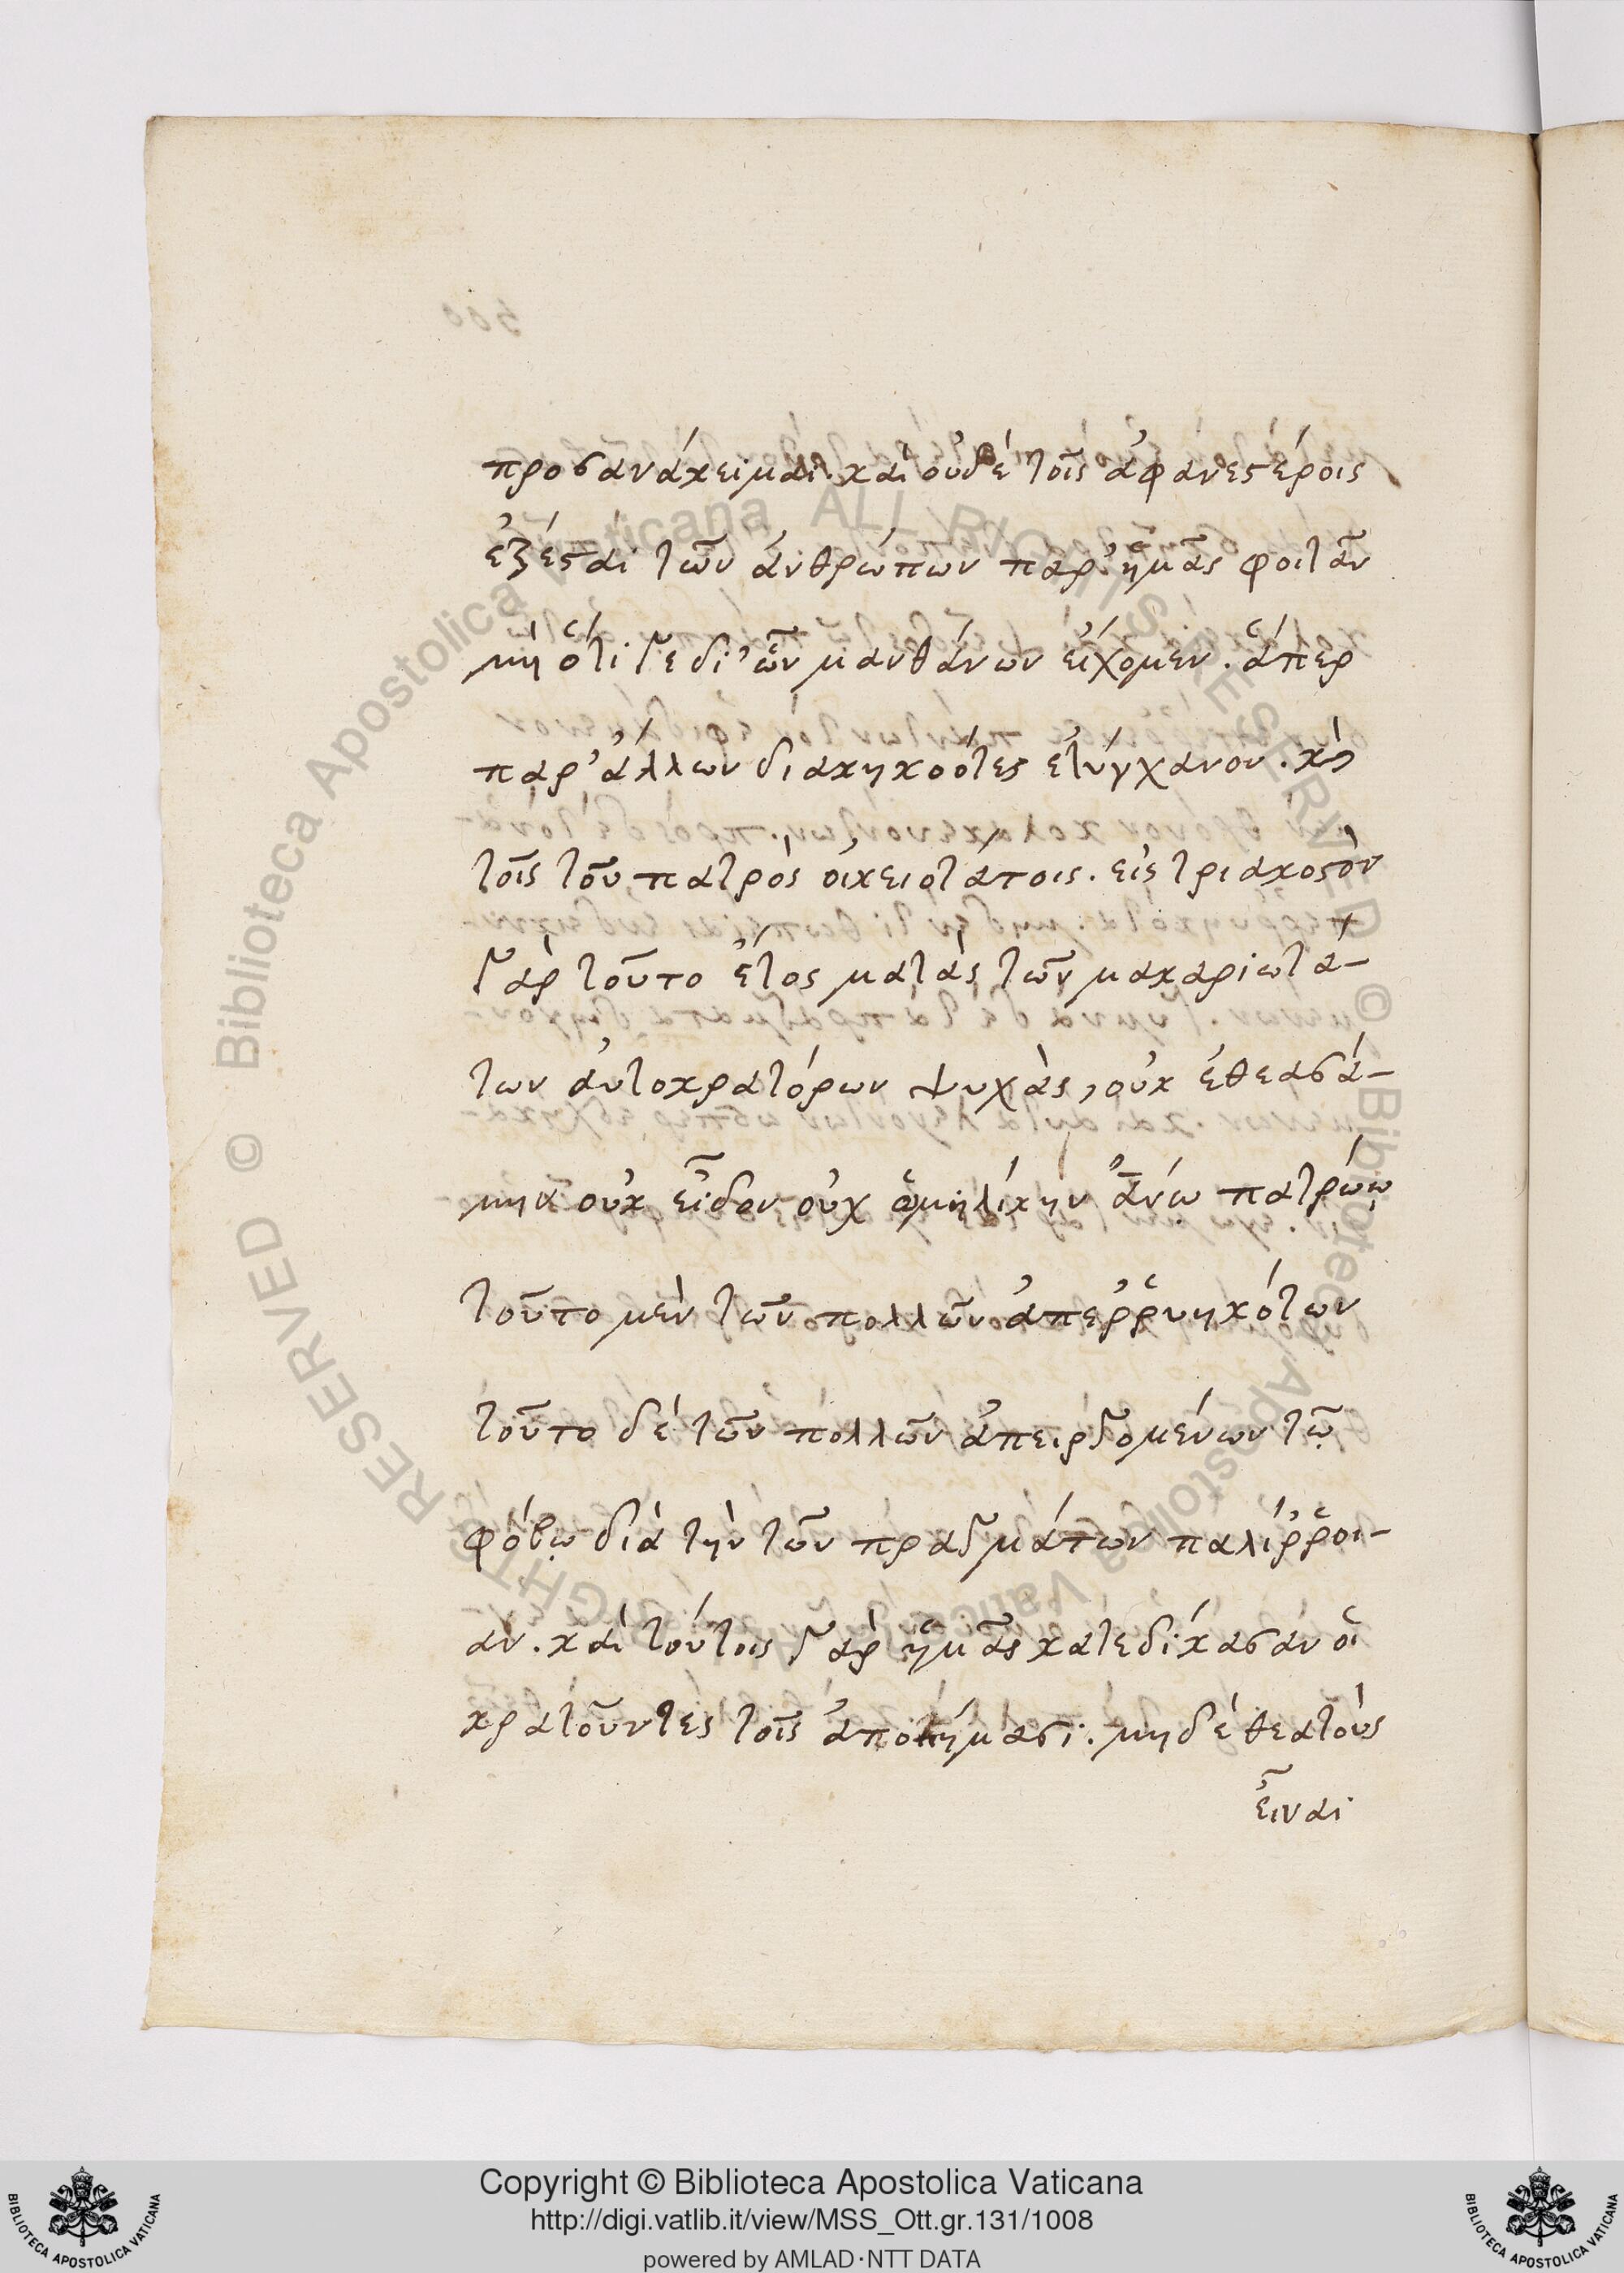 προσανάκειμαι. καὶ οὐδὲ τοῖς ἀφανεστέροις
ἐξέσται τῶν ἀνθρώπων παρ' ἡμᾶς φοιτᾶν
μὴ ὅτι γε δι' ὧν μανθάνων εἴχομεν. ἅπερ
παρ' ἄλλων διακηκοότες ἐτύγχανον. κἂν
τοῖς τοῦ πατρὸς οἰκειοτάτοις. εἰς τριακοστὸν
γὰρ τοῦτο ἔτος ματὰς τῶν μακαριωτά-
των αὐτοκρατόρων ψυχὰς, οὐκ ἐθεασά-
μην οὐκ εἶδον οὐχ ὁμηλίκην ἄνω πατρώῳ
τοῦτο μὲν τῶν πολλῶν ἀπεῤῥυηκότων
τοῦτο δὲ τῶν πολλῶν ἀπειργομένων τῷ
φόβῳ διὰ τὴν τῶν πραγμάτων παλίῤῥοι-
αν. καὶ τούτοις γὰρ ἡμᾶς κατεδίκασαν οἱ
κρατοῦντες τοῖς ἀποτήμασι. μηδὲ θεατοὺς
εἶναι
Copyright © Biblioteca Apostolica Vaticana
http://digi.vatlib.it/view/MSS_Ott.gr.131/1008
powered by AMLAD·NTT DATA
BIBLIOTECA APOSTOLICA VATICANA
BIBLIOTECA APOSTOLICA VATICANA
© Biblioteca Apostolica Vaticana ALL RIGHTS RESERVED © Biblioteca Apostolica Vaticana ALL RIGHTS RESERVED